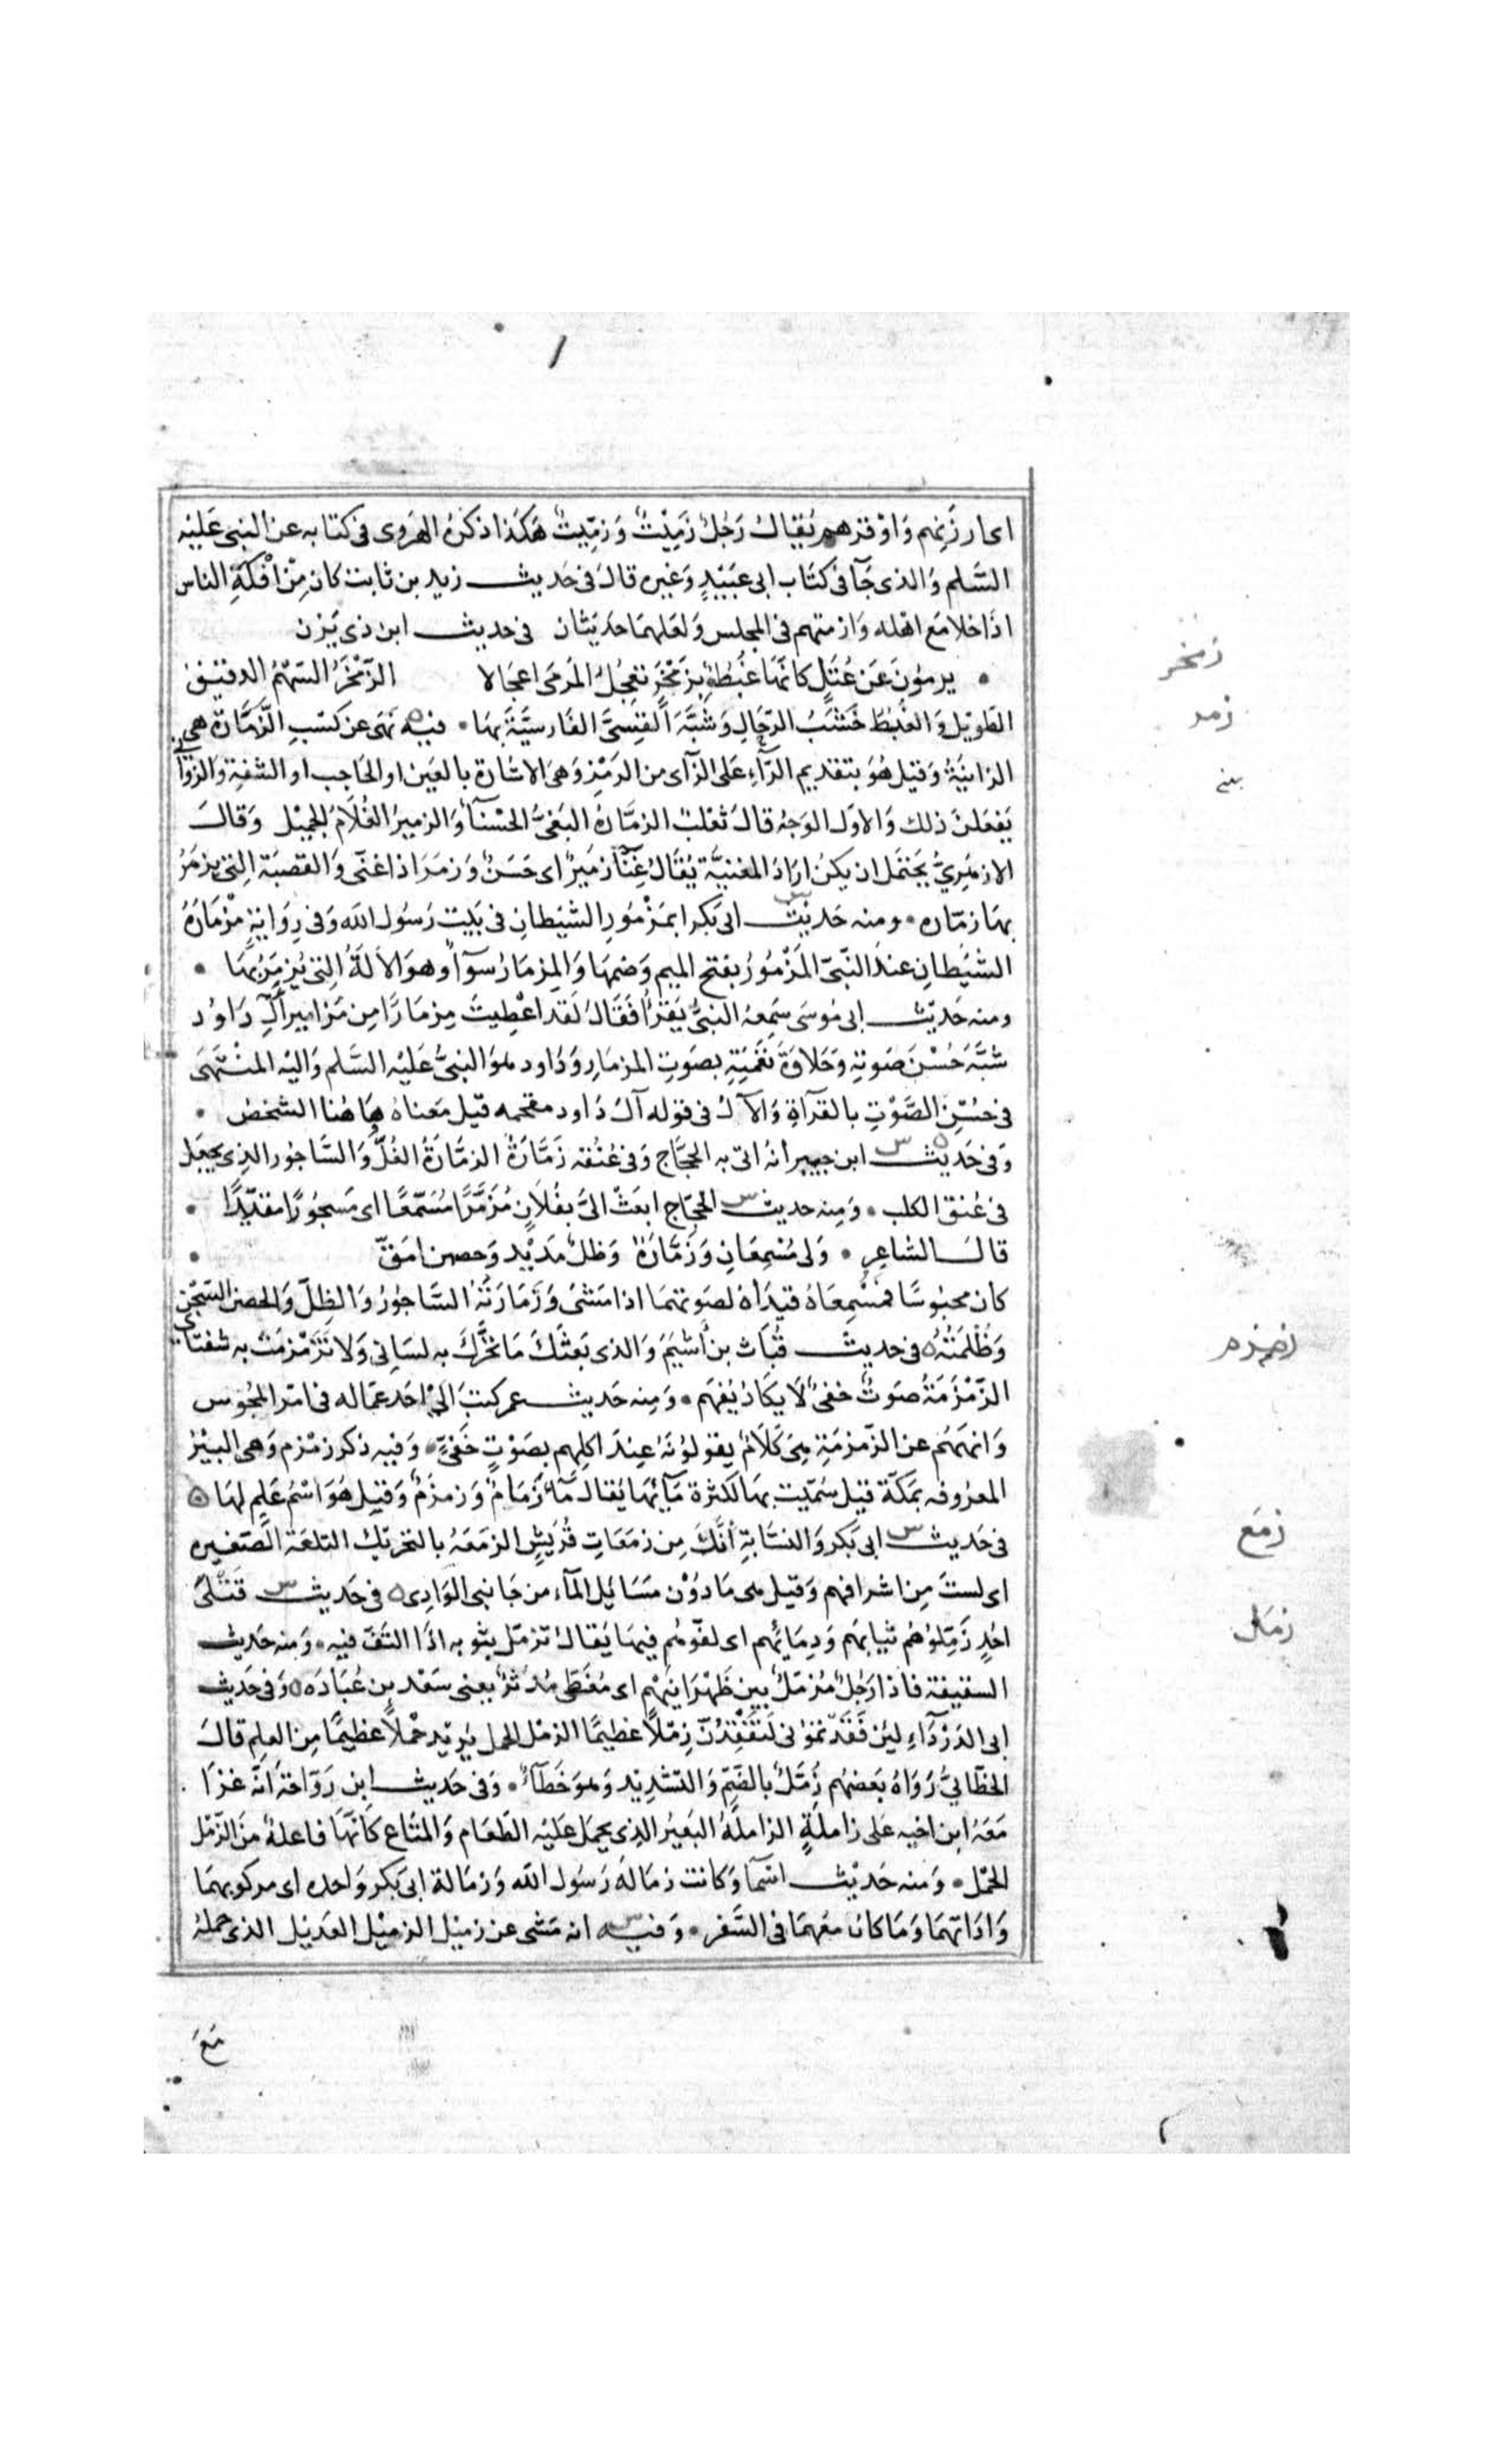 اى ارزنهم واوقرهم يُقال رَجُل زَمِيْتٌ وَزمِّيتٌ هَكَذا ذكرهُ الهَروى فى كتابه عن النبى عَليْه
السَّلم وَالذى جَآ فى كتَاب ابى عبَيْدٍ وَغيره قالَ فى حَديث زيد بن ثابت كان مِنْ افْكَهِ الناس
اذَا خلا مَع اهْله وَازمتهم فى المجلس وَلعَلهمَا حَديثان فى حديث ابن ذى يَزن
يرمُونَ عَن عُتَلٍ كانَّهَا غُبُطٌ بزَمْخَرٍ تعجُلُ المَرمَى اعجَالا الزَّمْخَرُ السَّهْمُ الدقيق
الطَويْل وَالغُبُطُ خَشَبُ الرّحَالِ وَشبَّهَ القِسِىَّ الفَارسيَّةَ بهَا فيه نهَى عن كسْبِ الزَّمَّارَة هى
الزانيَةُ وَقيل هُوَ بتقديم الرَّآءِ عَلى الزَّاى من الرَمْزِ وَهىَ الاشارة بالعَين او الحَاجب او الشفةِ وَالزوَانى
يَفعَلنَ ذلك وَالاول الوَجْه قالَ ثعْلب الزمَّارةُ البَغىُّ الحَسْنآءُ وَالزميرُ الغُلَامُ الجميْل وَقالَ
الازهَرِيُّ يحتمَل ان يكنْ ارَادَ المغنيَّة يُقَال غِنَآ زمَيرٌ اى حَسَنٌ وَزمَرَ اذا غنّى وَالقصَبَة التى يزمَرُ
بهَا زمّاره ومنه حَديْث ابى بَكر ابمَزْمُورِ الشيْطانِ فى بَيت رَسُول الله وَفى رِوَايةٍ مِزْمَارَةُ
الشيْطانِ عندَ النّبىّ المَزْمُورُ بفتح الميم وَضمهَا وَالمِزمَارُ سوَآ وهوَ الالَةُ التى يُزمَرُ بهَا
ومنه حَديْث ابى مُوسَى سَمِعهُ النبىُّ يَقرَأُ فَقَالَ لَقدْ اعْطِيتَ مِزمَارًا مِن مَزَامير آلِ دَاوُد
شبَّهَ حُسْنَ صَوتهِ وَحَلاوَةَ نغَمَتِهِ بصَوتِ المزمَارِ وَدَاود هوَ النبىُّ عَليْه السَّلم وَاليْه المنْتهَى
فى حُسْنِ الصَّوْتِ بالقرآةِ وَالآل فى قوله آل دَاود مقحمه قيْل مَعناهُ هَاهُنا الشخصُ
وَفى حَديْث س ابن جبيرٍ انهُ اتى به الحجَّاج وَفى عُنُقه زَمَّارَةٌ الزمَّارَةُ الغُلُّ وَالسَّاجُور الذى يجعَل
فى عُنق الكلب وَمِنه حديث س الحجّاج ابعَثْ الىَّ بفُلَانٍ مُزَمَّرًا مُسَمَّعًا اى مَسجُورًا مقيَّدًا
قالَ الشاعِر وَلى مُسْمِعَانِ وَزَمَّارَةٌ وَظلٌ مَديْد وَحصن امَقّ
كان محبُوسًا فمُسْمِعَاهُ قيدَاهُ لصَوتهمَا اذا مَشىَ وَزَمَارَتُهُ السَّاجُورُ وَالظِلّ وَالحصن السّجْن
وَظُلمَتُهُ فى حديث قُبَاث بن أشيَمَ وَالذى بَعثَكَ مَا تحَرَّكَ به لسَانى وَلا تَزَمْزمَتْ به شفتَاى
الزَّمْزَمَةُ صَوتٌ خفىٌّ لَا يَكَادُ يُفهَم وَمِنه حَديث عمر كتبَ الىْ احَد عمّاله فى امْر المجُوس
وَانهَهُم عن الزَّمزمَةِ هِىَ كَلَامٌ يقولُوْنَهُ عِندَ اكلِهِم بصَوْتٍ خَفىٍّ وَفيه ذكر زمْزم وَهى البيْرُ
المعرُوفه بمَكّة قيل سُمّيت بهَا لكثرة مَآئهَا يُقال مَآءٌ زُمَامٌ وَزمزَمٌ وَقيل هُوَ اسْمُ عَلمٍ لهَا
فى حَديث س ابى بَكر وَالنسَّابةِ أَنَّكَ مِن زمَعَاتِ قُرَيْشٍ الزمَعَهُ بالتحريْك التلعَة الصّغيره
اى لستَ مِن اشرافهم وَقيل هى مَا دُوْن مَسَايل المآء من جَانبى الوَادِى فى حَديث س قتْلىَ
احُدٍ زَمِّلوْهُم ثيابهَم وَدِمَائهم اى لفّوهُم فيهَا يُقال تزمّل بثوبه اذَا التَفّ فيه وَمنه حَديث
السقيفة فاذا رَجُلٌ مُزمّلٌ بين ظَهْرَانيْهم اى مُغَطَّى مُدَثرٌ يعنى سَعْد بن عُبَادَه وَفى حَديث
ابى الدَرْدَآءِ ليَن فَقَدْ تمُوْنى لَتَفْقِدُنّ زِمْلًا عَظيْمًا الزمْل الحمل يُريْد حْملًا عظيْمًا مِن العلِم قالَ
الخطّابىُّ رَوَاهُ بَعضهُم زُمَّلٌ بالضَّمِّ وَالتشديْد وَهوَ خَطآءٌ وَفى حَديث ابن رَوَاحَة انّهُ غزَا
مَعَهُ ابن اخيه عَلى زاملَةٍ الزاملَةُ البَعيْرُ الذى يحمَل عَليْه الطَعَام وَالمتَاع كَانّهَا فاعلةٌ مِنَ الزّمْل
الحَمْل وَمنه حَديْث اسْمآ وَكانت زمَالة رَسُول الله وَزمَالة ابى بَكر وَاحده اى مركوبهمَا
وَادَاتهمَا وَمَا كان معَهمَا فى السَّفر وَفيه س انه مَشى عن زميْل الزميْل العَديْل الذى حملهُ
مَعَ
زمخر
زمر
زمزم
زمع
زمل